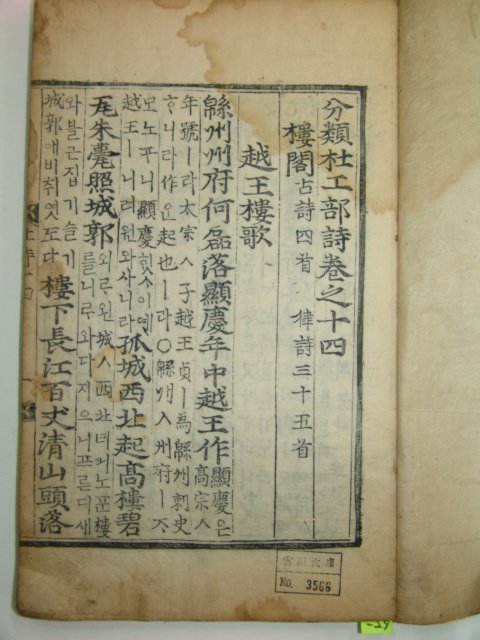 分類杜工部詩卷之十四
樓閣 古詩四首 律詩三十五首
越王樓歌
緜州州府何磊落顯慶年中越王作 顯慶은 高宗ㅅ
年號ㅣ라太宗ㅅ子越王貞ㅣ爲緜州刺史
ᄒᆞ니라作은起也ㅣ라○緜州ㅅ州府ㅣ
모노ᄑᆞ니顯慶ㅅᄒᆡ예
越王ㅣ
孤城西北起高樓碧
瓦朱甍照城郭
외ᄅᆞ왼城ㅅ西北녀긔노ᄑᆞᆫ樓
ᄅᆞᆯ니ᄅᆞ와다지으니프른디새
와블근집기슬기
城郭애비취엿도다
樓下長江百丈清山頭落
No. 3566